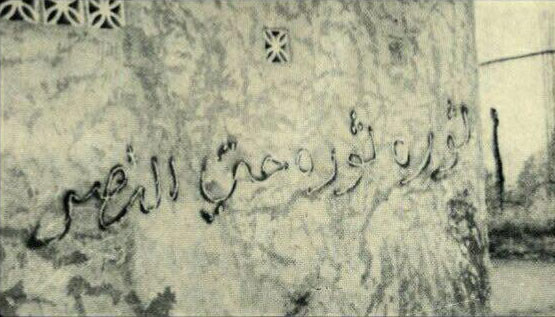 ثوره ثوره حتى النصر